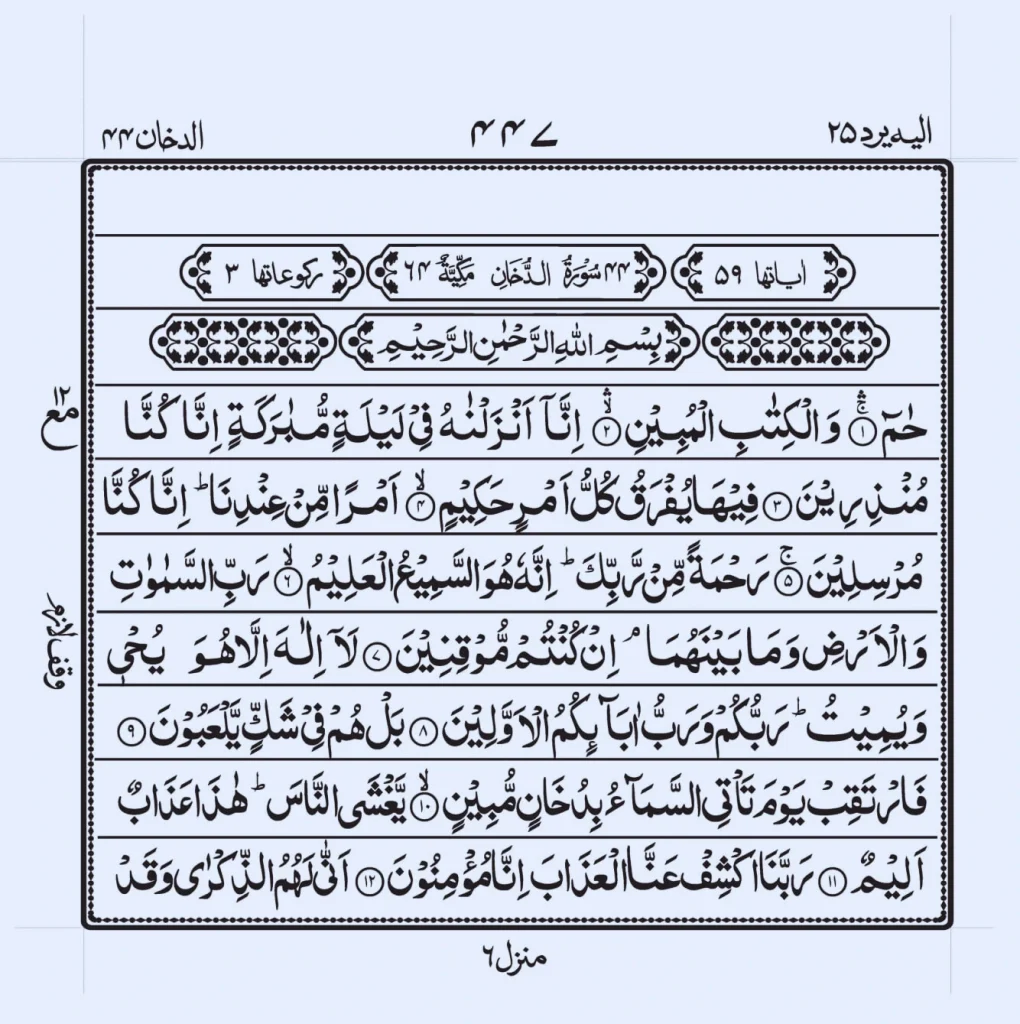 الیه یرد ۲۵
۴۴۷
الدخان ۴۴
اٰیاتها ۵۹
۴۴ سُوْرَةُ الدُّخَانِ مَكِّيَّةٌ ۶۴
رکوعاتها ۳
بِسْمِ اللّٰهِ الرَّحْمٰنِ الرَّحِيْمِ
حٰمٓ ۚۛ‏ ﴿۱﴾ وَالْكِتٰبِ الْمُبِيْنِ ۙۛ‏ ﴿۲﴾ اِنَّاۤ اَنْزَلْنٰهُ فِيْ لَيْلَةٍ مُّبٰرَكَةٍ اِنَّا كُنَّا
مُنْذِرِيْنَ ﴿۳﴾ فِيْهَا يُفْرَقُ كُلُّ اَمْرٍ حَكِيْمٍ ۙ‏ ﴿۴﴾ اَمْرًا مِّنْ عِنْدِنَا ؕ اِنَّا كُنَّا
مُرْسِلِيْنَ ۚ‏ ﴿۵﴾ رَحْمَةً مِّنْ رَّبِّكَ ؕ اِنَّهٗ هُوَ السَّمِيْعُ الْعَلِيْمُ ۙ‏ ﴿۶﴾ رَبِّ السَّمٰوٰتِ
وَالْاَرْضِ وَمَا بَيْنَهُمَا ۘ اِنْ كُنْتُمْ مُّوْقِنِيْنَ ﴿۷﴾ لَاۤ اِلٰهَ اِلَّا هُوَ يُحْيٖ
وَيُمِيْتُ ؕ رَبُّكُمْ وَرَبُّ اٰبَآئِكُمُ الْاَوَّلِيْنَ ﴿۸﴾ بَلْ هُمْ فِيْ شَكٍّ يَّلْعَبُوْنَ ﴿۹﴾
فَارْتَقِبْ يَوْمَ تَاْتِي السَّمَآءُ بِدُخَانٍ مُّبِيْنٍ ۙ‏ ﴿۱۰﴾ يَّغْشَى النَّاسَ ؕ هٰذَا عَذَابٌ
اَلِيْمٌ ﴿۱۱﴾ رَبَّنَا اكْشِفْ عَنَّا الْعَذَابَ اِنَّا مُؤْمِنُوْنَ ﴿۱۲﴾ اَنّٰى لَهُمُ الذِّكْرٰى وَقَدْ
مع ۱۲
وقف لازم
منزل ۶